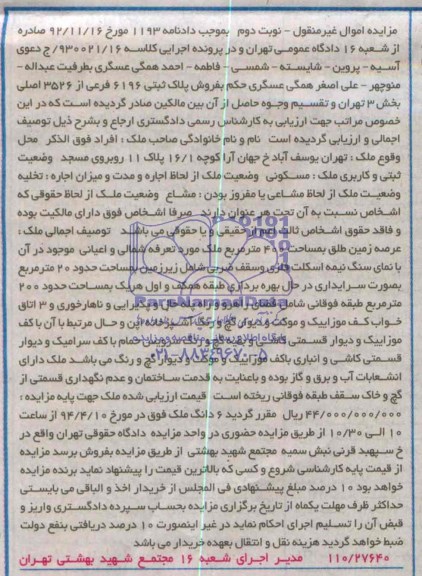 مزایده اموال غیرمنقول - نوبت دوم بموجب دادنامه ۱۱۹۳ مورخ ۹۲/۱۱/۱۶ صادره
از شعبه ۱۶ دادگاه عمومی تهران و در پرونده اجرایی کلاسه ۹۳۰۰۲۱/۱۶/ج دعوی
آسیه - پروین - شایسته - شمسی - فاطمه - احمد همگی عسگری بطرفیت عبداله -
منوچهر - علی اصغر همگی عسگری حکم بفروش پلاک ثبتی ۶۱۹۶ فرعی از ۳۵۲۶ اصلی
بخش ۳ تهران و تقسیم وجوه حاصل از آن بین مالکین صادر گردیده است که در این
خصوص مراتب جهت ارزیابی به کارشناس رسمی دادگستری ارجاع و بشرح ذیل توصیف
اجمالی و ارزیابی گردیده است نام و نام خانوادگی صاحب ملک : افراد فوق الذکر محل
وقوع ملک : تهران یوسف آباد خ جهان آرا کوچه ۱۶/۱ پلاک ۱۱ روبروی مسجد وضعیت
ثبتی و کاربری ملک : مسکونی وضعیت ملک از لحاظ اجاره و مدت و میزان اجاره : تخلیه
وضعیت ملک از لحاظ مشاعی یا مفروز بودن : مشاع وضعیت ملک از لحاظ حقوقی که
اشخاص نسبت به آن تحت هر عنوان دارند صرفا اشخاص فوق دارای مالکیت بوده
و فاقد حقوق اشخاص ثالث اعم از حقیقی و یا حقوقی می باشد توصیف اجمالی ملک :
عرصه زمین طلق بمساحت ملک مورد تعرفه شمالی و اعیانی موجود در آن
با نمای سنگ نیمه اسکلت فلزی وسقف ضربی شامل زیرزمین بمساحت حدود ۲۰ مترمربع
بصورت سرایداری در حال بهره برداری طبقه همکف و اول هریک بمساحت حدود ۲۰۰
مترمربع طبقه فوقانی شامل فضای راهرو و راه پله هال و پذیرایی و ناهارخوری و ۳ اتاق
خواب کف موزاییک و موکت و دیوار گچ و رنگ آشپزخانه اپن و حال مرتبط با آن با کف
موزاییک و دیوار قسمتی کاشی و بقیه گچ و رنگ سرویس حمام با کف سرامیک و دیوار
قسمتی کاشی و انباری باکف موزاییک و موکت و دیوار گچ و رنگ می باشد ملک دارای
انشعابات آب و برق و گاز بوده و باعنایت به قدمت ساختمان و عدم نگهداری قسمتی از
گچ و خاک سقف طبقه فوقانی ریخته است قیمت ارزیابی شده ملک جهت پایه مزایده :
۴۴/۰۰۰/۰۰۰/۰۰۰ ریال مقرر گردید ۶ دانگ ملک فوق در مورخ ۹۴/۴/۱۰ از ساعت
۱۰ الی ۱۰/۳۰ از طریق مزایده حضوری در واحد مزایده دادگاه حقوقی تهران واقع در
خ سپهبد قرنی نبش سمیه مجتمع شهید بهشتی از طریق مزایده بفروش برسد مزایده
از قیمت پایه کارشناسی شروع و کسی که بالاترین قیمت را پیشنهاد نماید برنده مزایده
خواهد بود ۱۰ درصد مبلغ پیشنهادی فی المجلس از خریدار اخذ و الباقی می بایستی
حداکثر ظرف مهلت یکماه از تاریخ برگزاری مزایده بحساب سپرده دادگستری واریز و
قبض آن را تسلیم اجرای احکام نماید در غیر اینصورت ۱۰ درصد دریافتی بنفع دولت
ضبط خواهد گردید هزینه نقل و انتقال بعهده خریدار می باشد
۱۱۰/۲۷۶۴۰ مدیر اجرای شعبه ۱۶ مجتمع شهید بهشتی تهران
۰۲۱-۸۸۳۴۹۶۷۰-۵